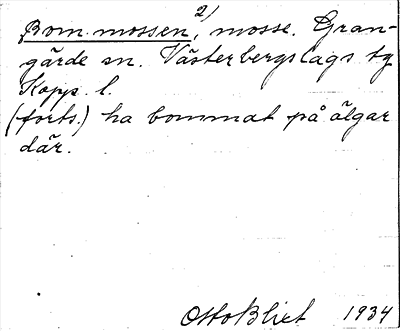 Bom mossen 2), mosse. Gran-
gärde sn. Västerbergslags tg
Kopp. l.
(forts.) ha bommat på älgar
där.
Otto Blixt 1934